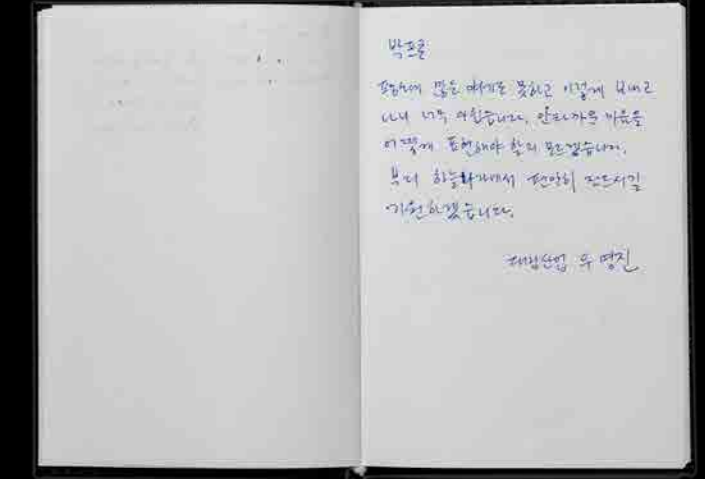 박프로
평소에 많은 얘기도 못하고 이렇게 보내고
나니 너무 아쉽습니다. 안타까운 마음을
어떻게 표현해야 할지 모르겠습니다.
부디 하늘나라에서 편안히 잠드시길
기원하겠습니다.
대림산업 우명진